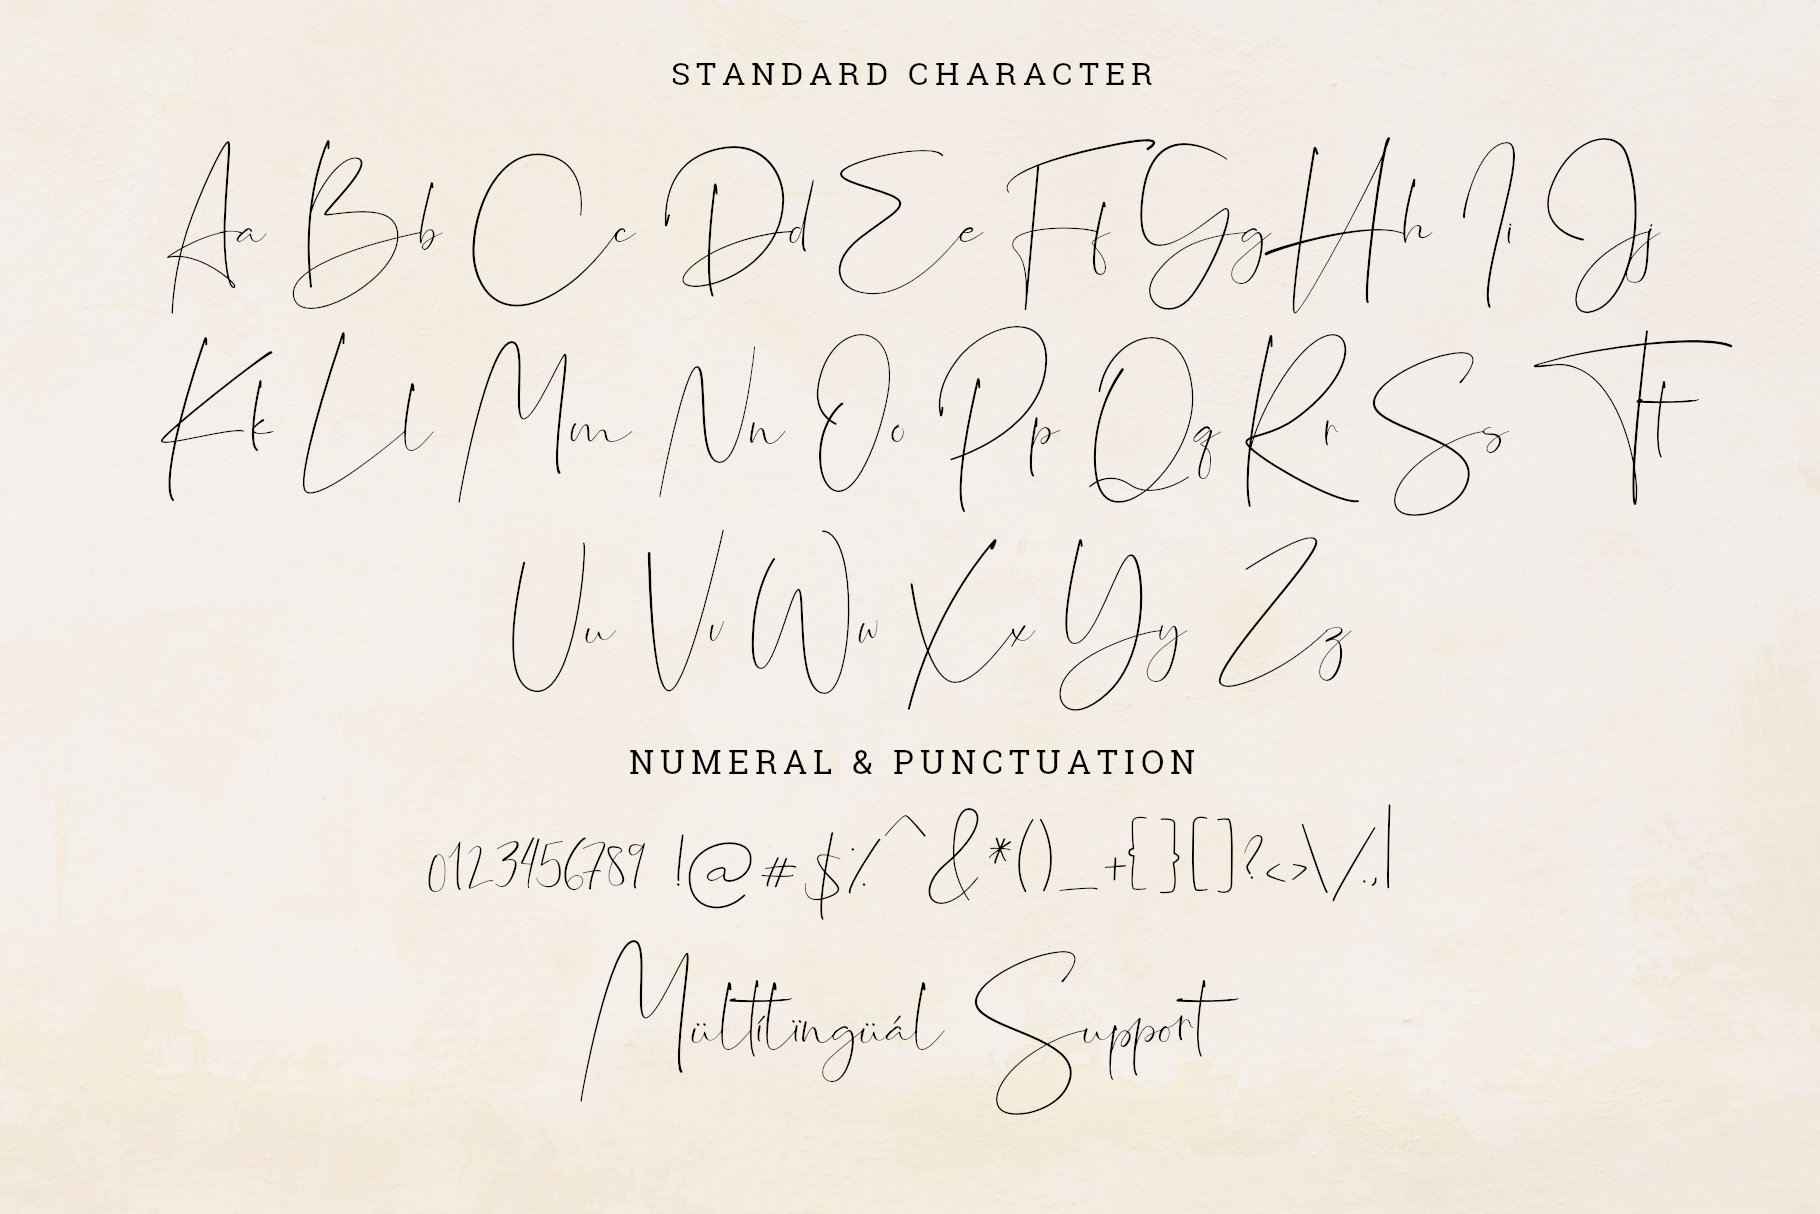 STANDARD CHARACTER
Aa Bb Cc Dd Ee Ff Gg Hh Ii Jj
Kk Ll Mm Nn Oo Pp Qq Rr Ss Tt
Uu Vv Ww Xx Yy Zz
NUMERAL & PUNCTUATION
0123456789 !@#$%^&*()_+{}[]?<>\/.,|
Mültílïngüál Support